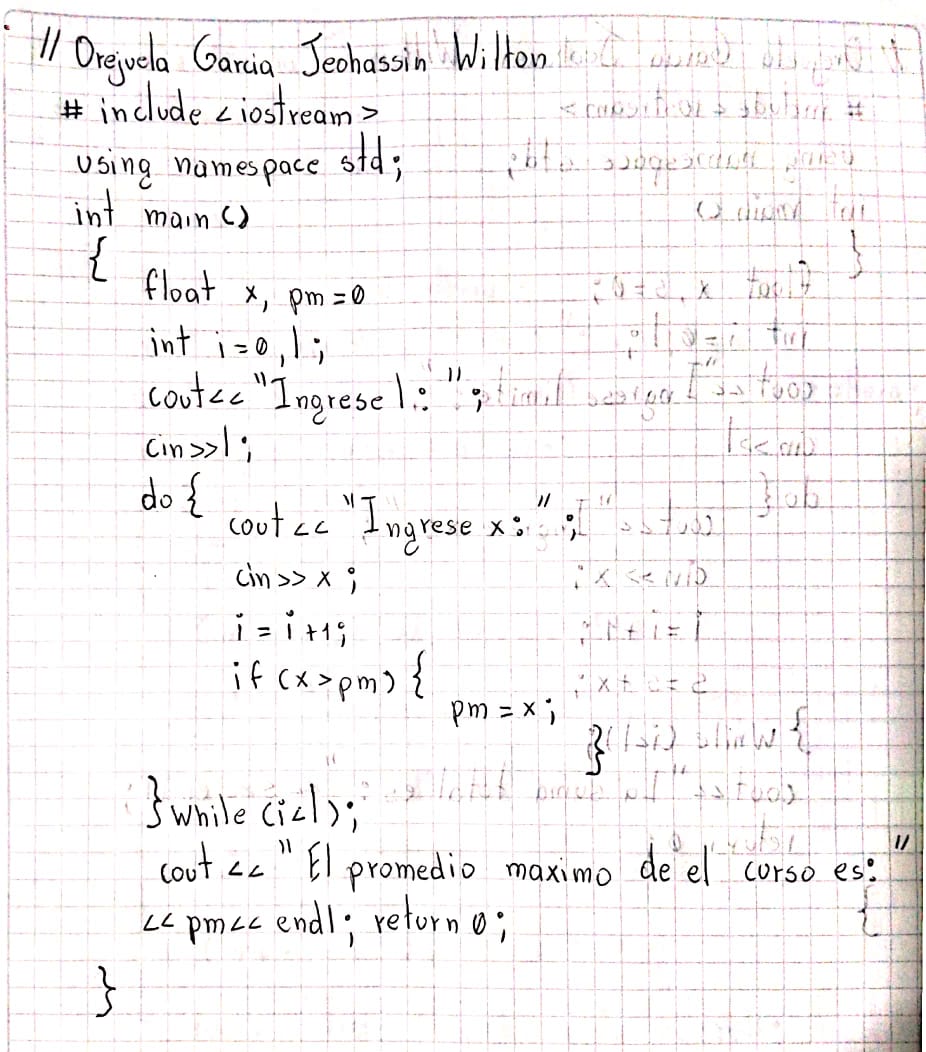 // Orejuela Garcia Jeohassin Wilton
# include <iostream>
using namespace std;
int main ()
{
float x, pm = 0
int i = 0, l;
cout << "Ingrese l: ";
cin >> l;
do {
cout << "Ingrese x: ";
cin >> x;
i = i + 1;
if (x > pm) {
pm = x;
}
} while (i < l);
cout << " El promedio maximo de el curso es: "
<< pm << endl; return 0;
}